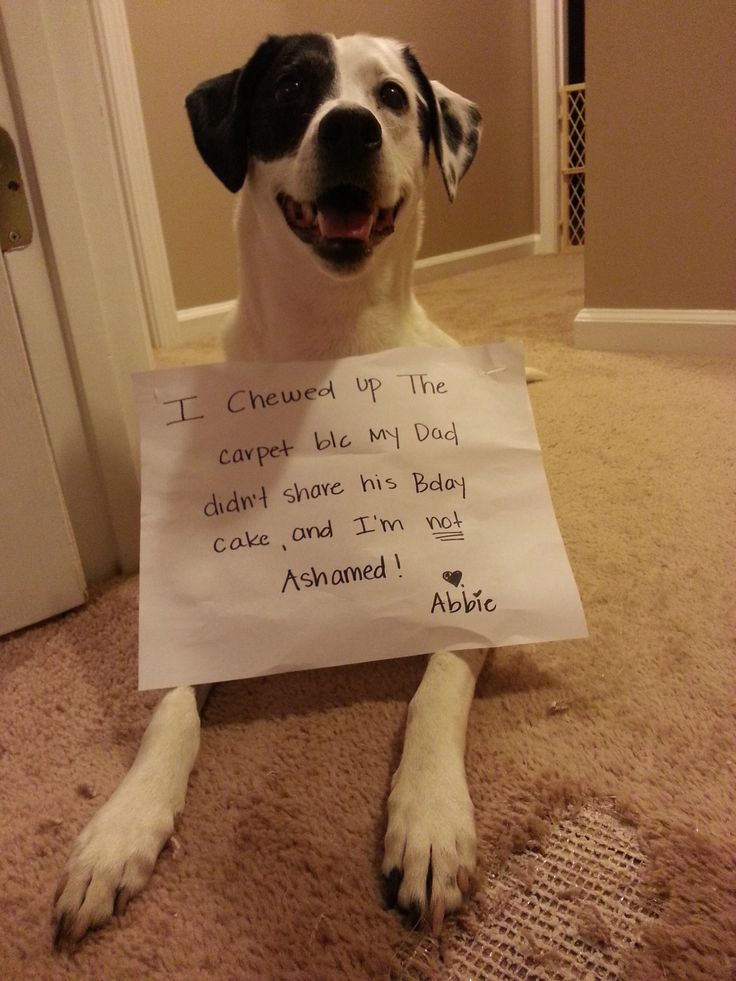 I Chewed up The
carpet b/c My Dad
didn't share his Bday
cake, and I'm not
Ashamed!
♥
Abbie